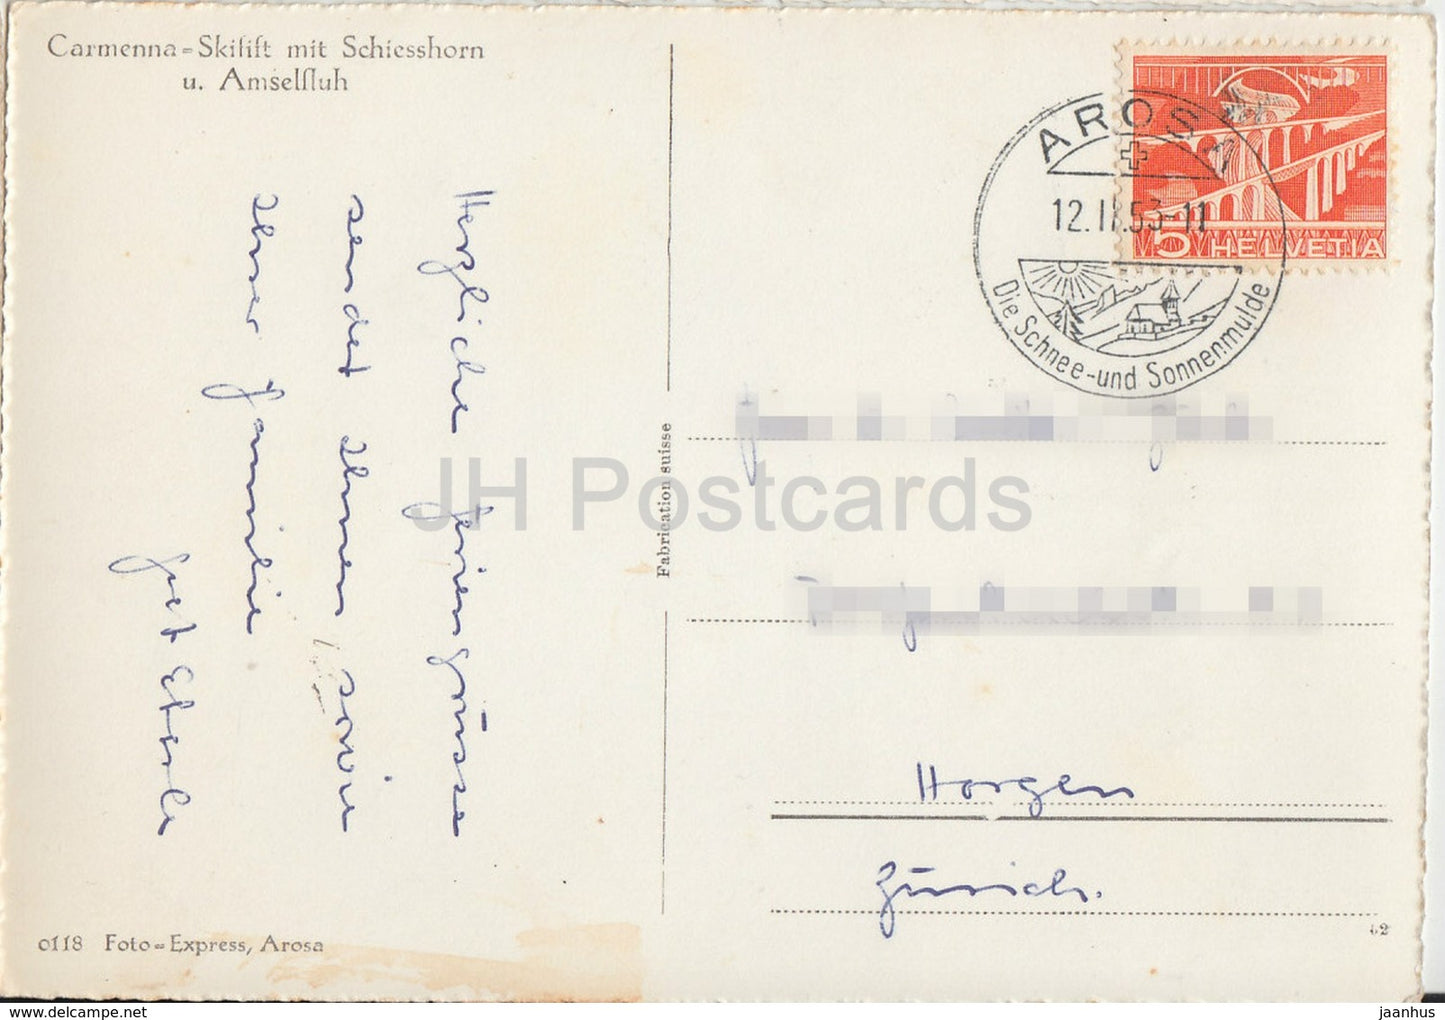 Carmenna=Skilift mit Schiesshorn
u. Amselfluh
Herzliche Feriengrüsse
sendet Ihnen sowie
Ihrer Familie
AROSA
12.II.53-11
Die Schnee-und Sonnenmulde
5 HELVETIA
Fabrication suisse
JH Postcards
Horgen
Zürich.
0118 Foto=Express, Arosa
jaanhus @ delcampe.net